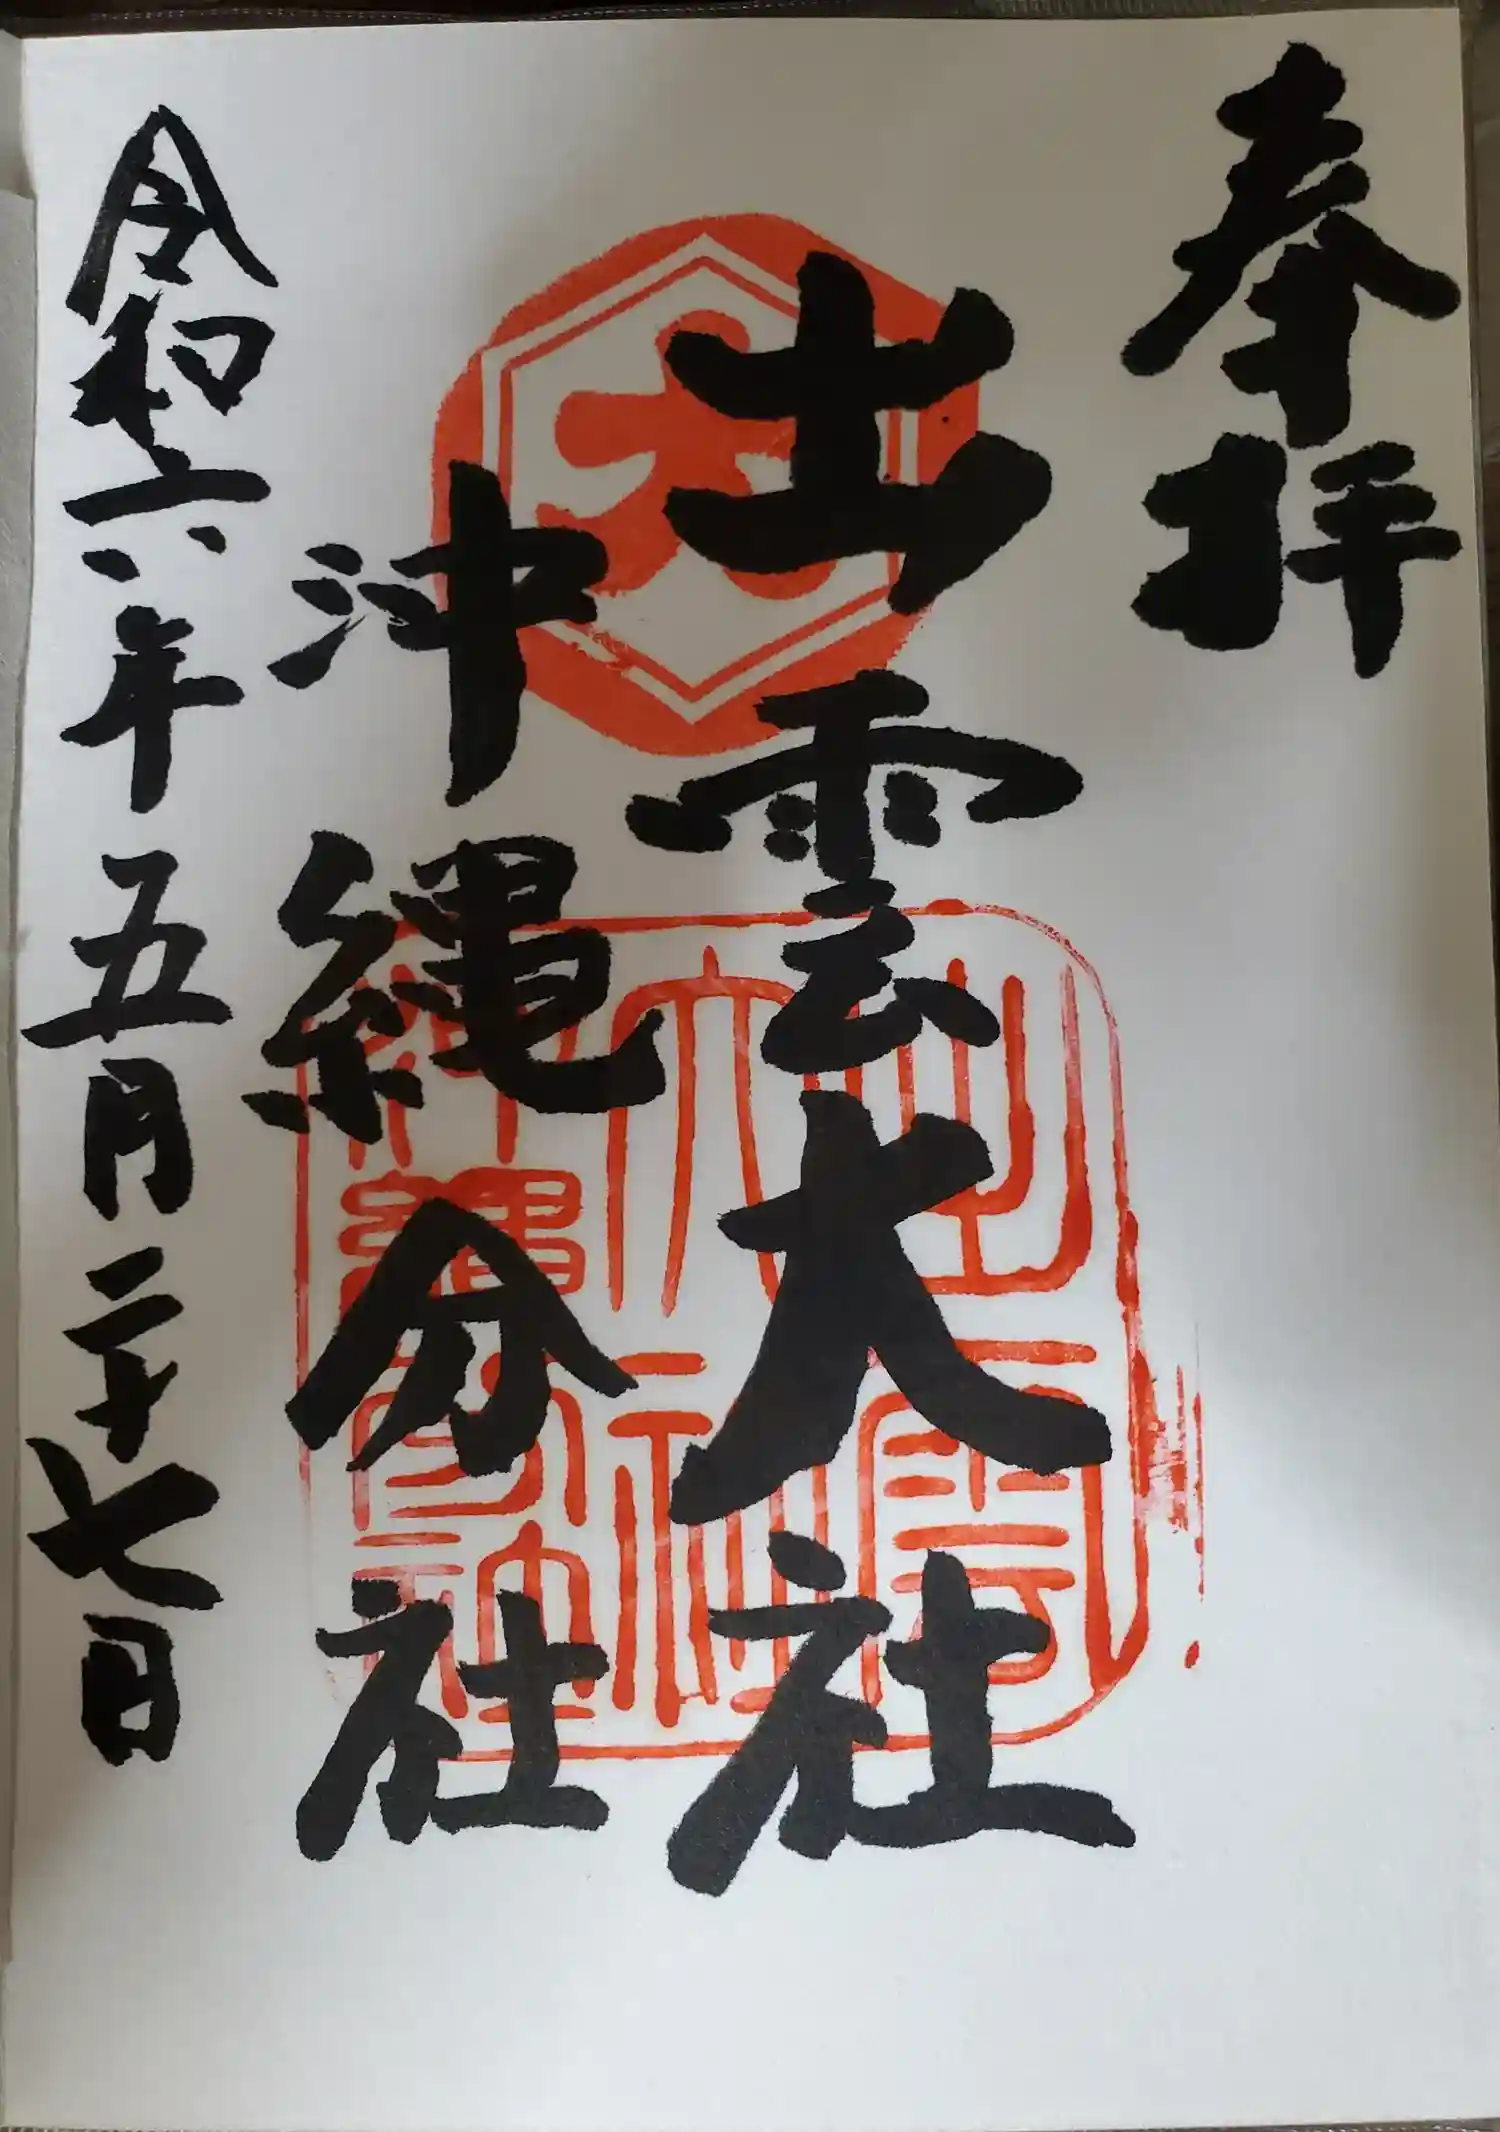 奉拝
出雲大社
沖縄分社
令和六年五月二十七日
大
出雲
大社
沖縄分社